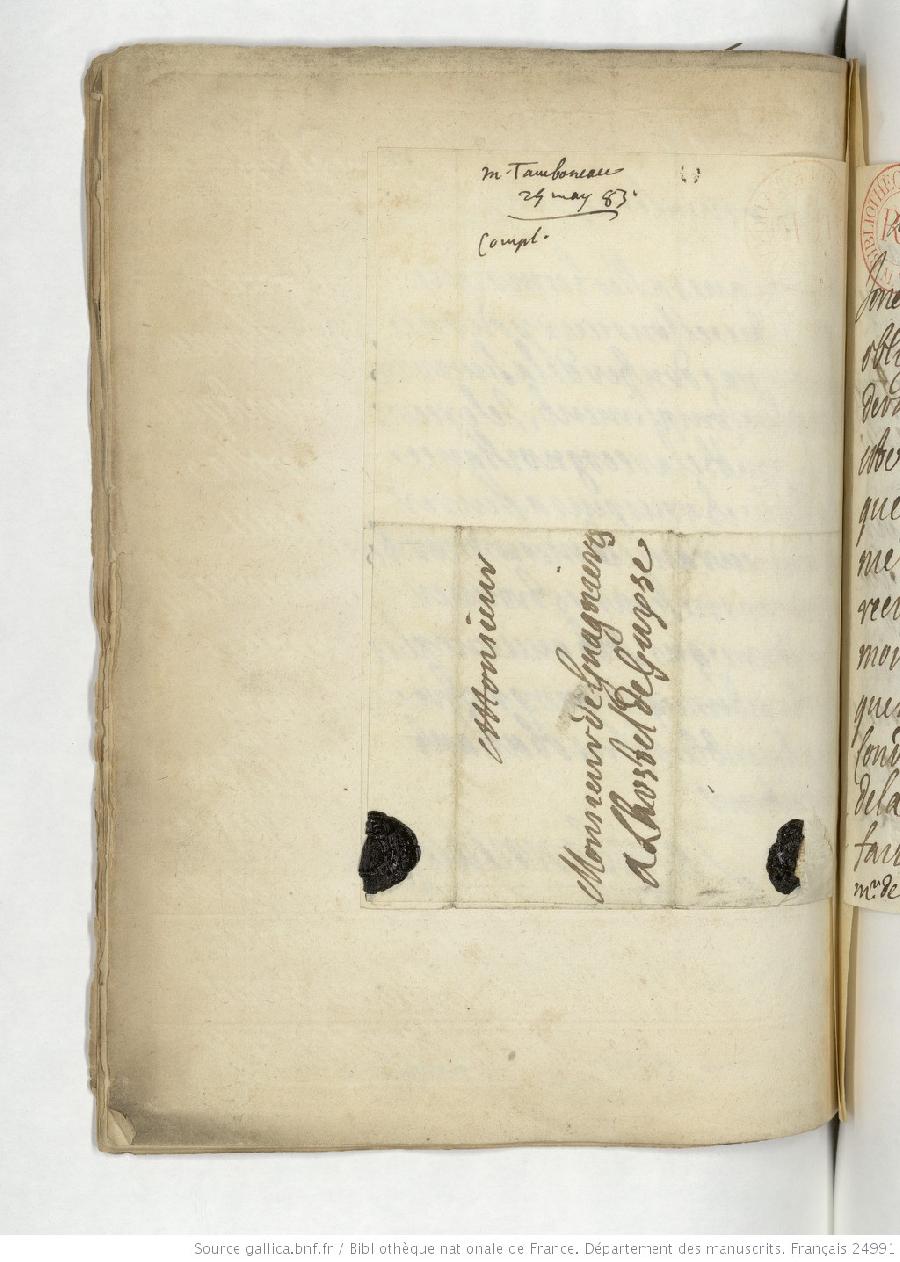 m. Tamboneau
24 may 83.
Compl.
Monsieur
Monsieur de Guagnieres
a Lhostel de Guysse
que
me
mon
que
de la
mr. de
Source gallica.bnf.fr / Bibliothèque nationale de France. Département des manuscrits. Français 24991